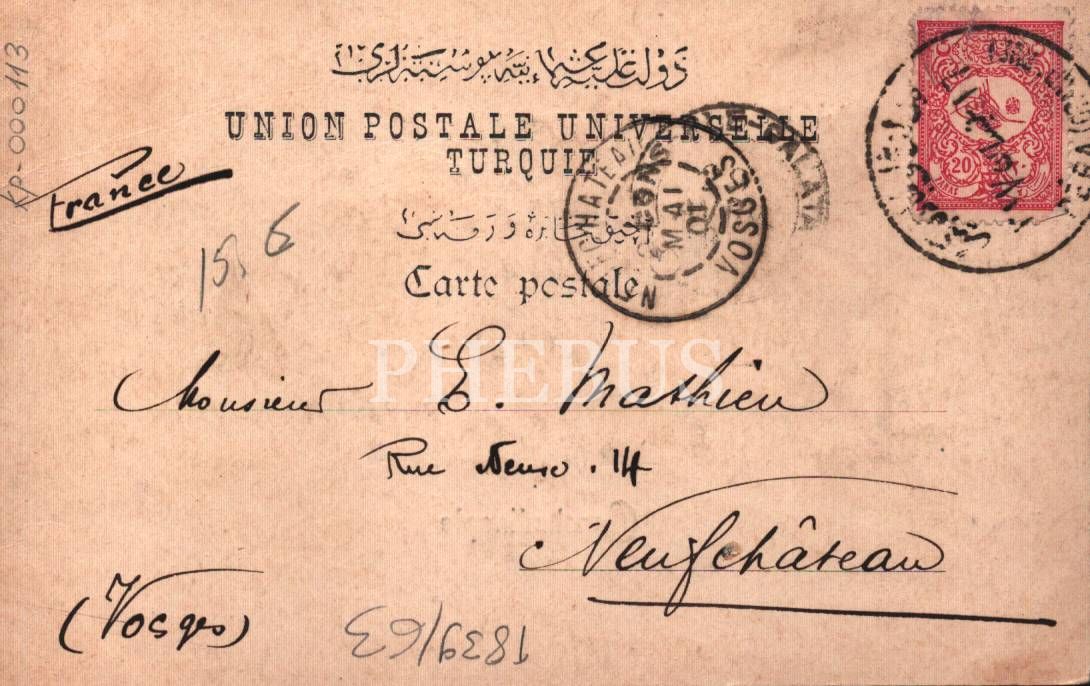 KP-000113
دولت عليه عثمانيه پوسته لرى
UNION POSTALE UNIVERSELLE
TURQUIE
France
15. 6
Carte postale
NEUFCHATEAU
MAI
01
VOSGES
GALATA
20
PHEBUS
Monsieur E. Mathieu
Rue Neuve . 14
Neufchâteau
(Vosges)
1839/63